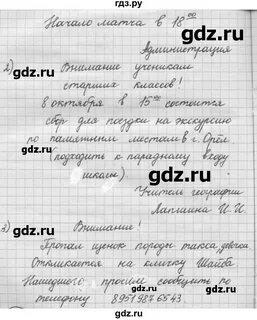 гдз.ру
Начало матча в 18⁰⁰
Администрация
2) Внимание ученикам
старших классов!
8 октября в 15⁰⁰ состоится
сбор для поездки на экскурсию
по памятным местам в г. Орёл.
(подходить к парадному входу
школы)
Учитель географии
Лапшина И. И.
3) Внимание!
Пропал щенок породы такса, девочка
Откликается на кличку Шайба
Нашедшего просим сообщить по
телефону 89519876543
gdz.ru
gdz.ru
gdz.ru
gdz.ru
gdz.ru
gdz.ru
gdz.ru
gdz.ru
gdz.ru